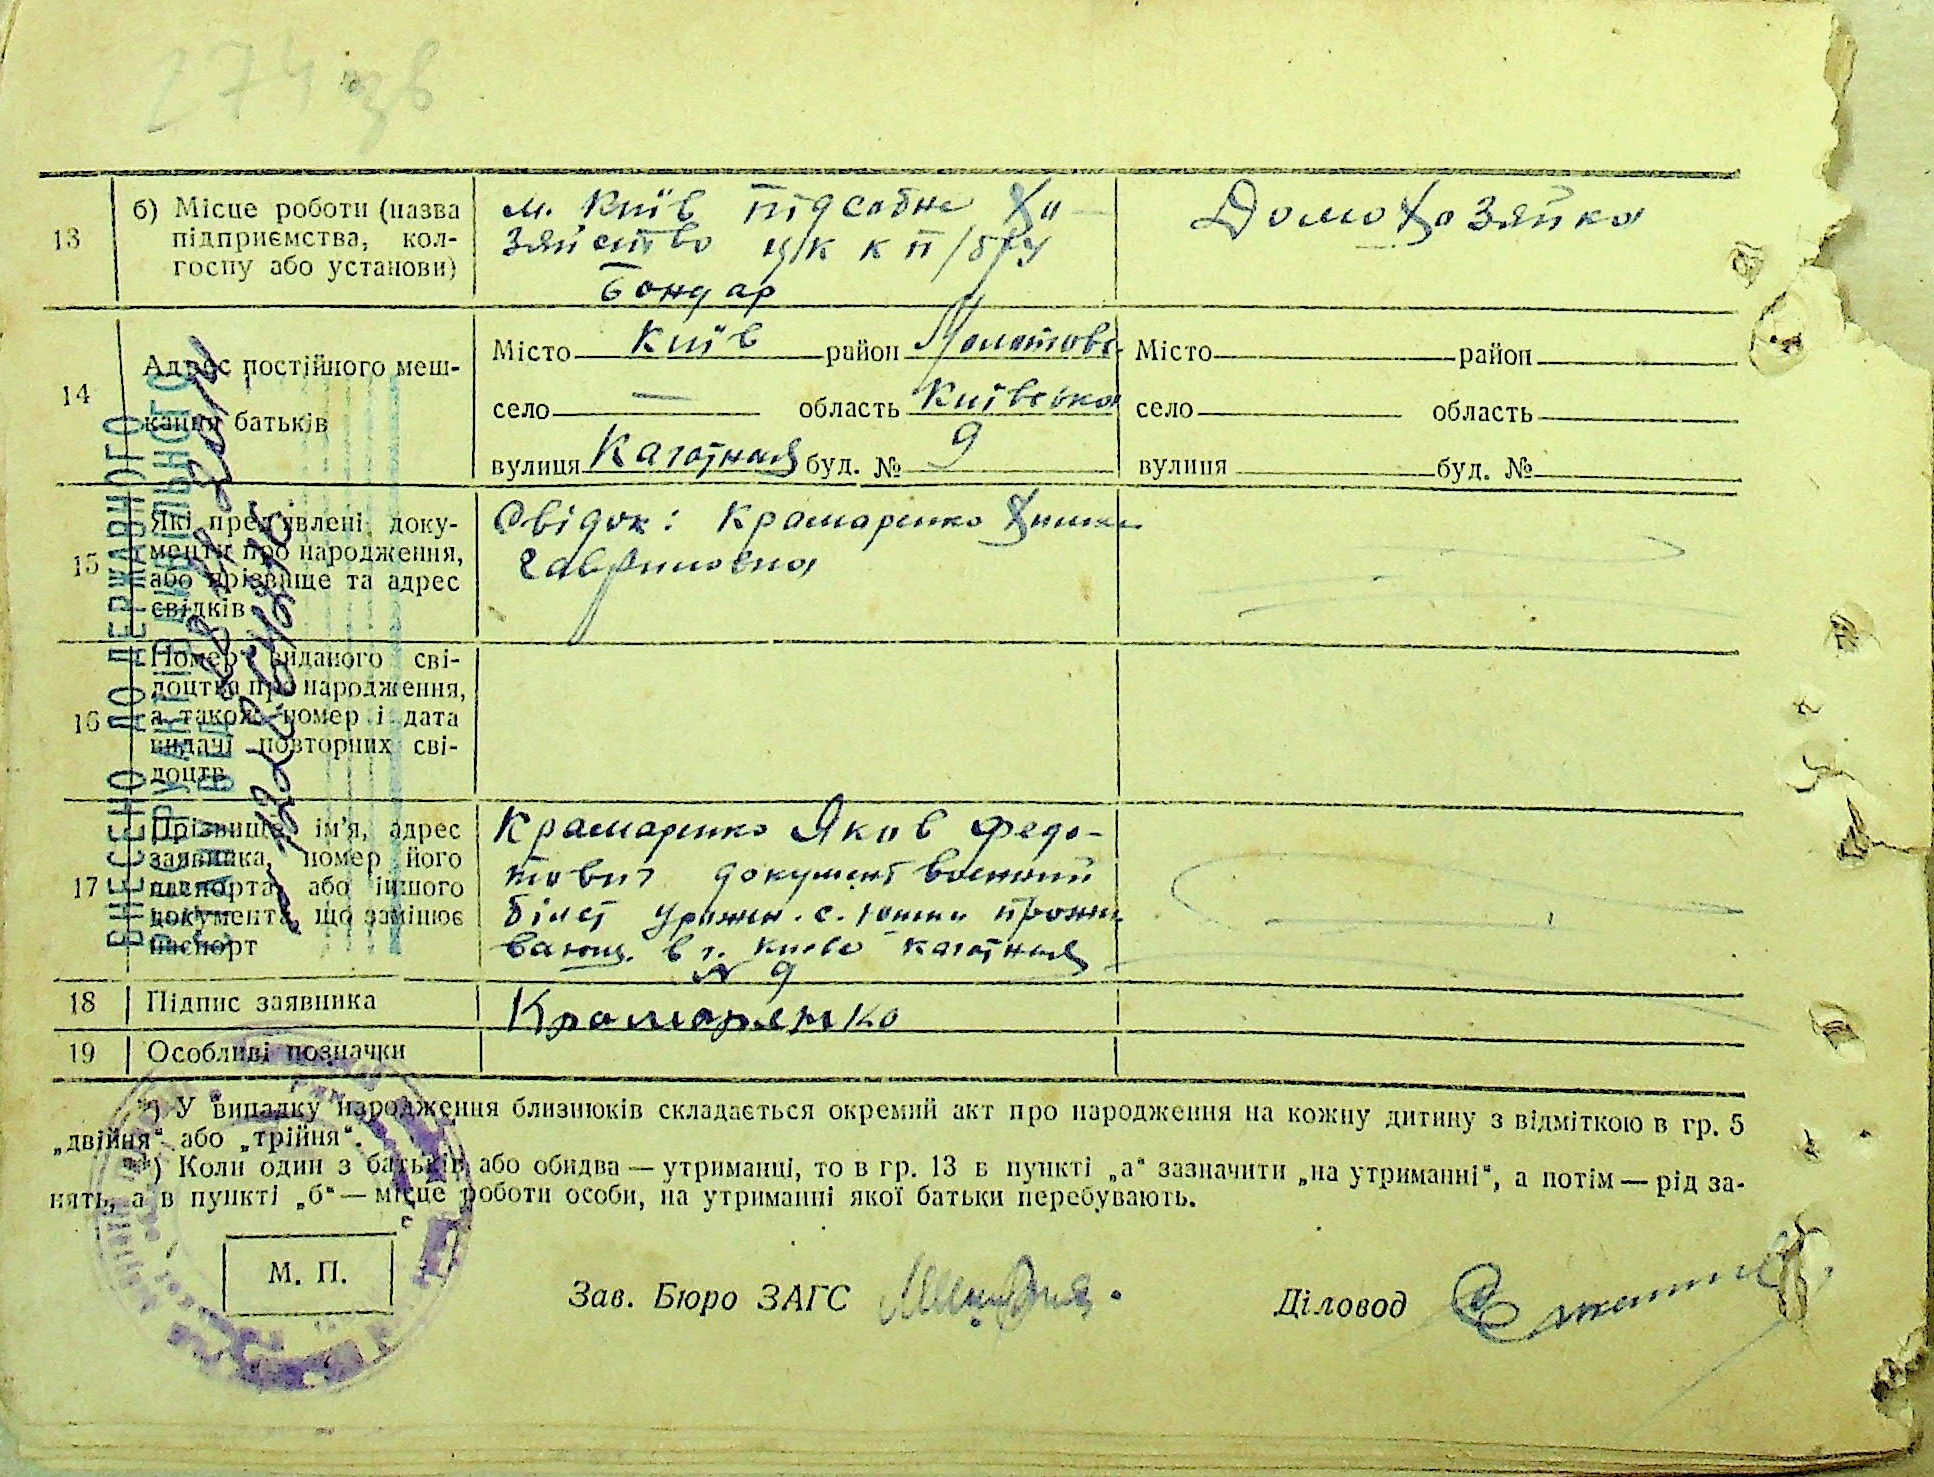 274 зв
13
б) Місце роботи (назва
підприємства, кол-
госпу або установи)
м. Київ підсобне Ха-
зяйство ц/к к п/б/у
Бондар
Домохазяйка
14
Адрес постійного меш-
кання батьків
Місто Київ район Молотов
село — область Київська
вулиця Кагатная буд. № 9
Місто район
село область
вулиця буд. №
15
Які пред'явлені доку-
менти про народження,
або прізвище та адрес
свідків
Свідок: Крамаренко
Гавриловна
16
Номер виданого сві-
доцтва про народження,
а також номер і дата
видачі повторних сві-
доцтв
17
Прізвище, ім'я, адрес
заявника, номер його
паспорта або іншого
документа, що замінює
паспорт
Крамаренко Яков Федо-
тович документ военний
білет урожен. с. прожи
вающ. в г. Киеве Кагатная
№ 9
18
Підпис заявника
Крамаренко
19
Особливі позначки
ВНЕСЕНО ДО ДЕРЖАВНОГО
*) У випадку народження близнюків складається окремий акт про народження на кожну дитину з відміткою в гр. 5
„двійня“ або „трійня“.
**) Коли один з батьків або обидва — утриманці, то в гр. 13 в пункті „а“ зазначити „на утриманні“, а потім — рід за-
нять, а в пункті „б“ — місце роботи особи, на утриманні якої батьки перебувають.
М. П.
Зав. Бюро ЗАГС
Діловод